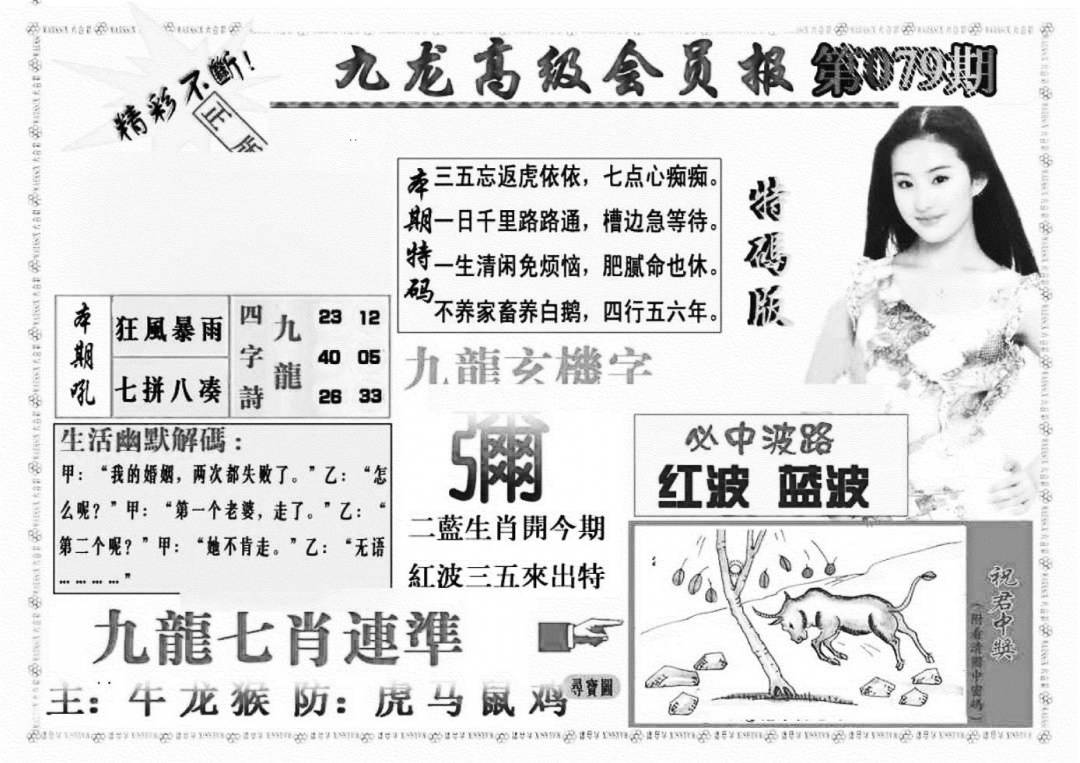 精彩不斷!
正版
九龙高级会员报
第079期
本期特码
三五忘返虎依依，七点心痴痴。
一日千里路路通，槽边急等待。
一生清闲免烦恼，肥腻命也休。
不养家畜养白鹅，四行五六年。
特碼版
本期吼
狂風暴雨
七拼八凑
四字詩
九龍
23 12
40 05
26 33
九龍玄機字
彌
二藍生肖開今期
紅波三五來出特
生活幽默解碼：
甲：“我的婚姻，两次都失败了。”乙：“怎
么呢？”甲：“第一个老婆，走了。”乙：“
第二个呢？”甲：“她不肯走。”乙：“无语
…………”
必中波路
红波 蓝波
九龍七肖連準
主：牛龙猴 防：虎马鼠鸡
尋寶圖
祝君中獎
（附看清圖中密碼）